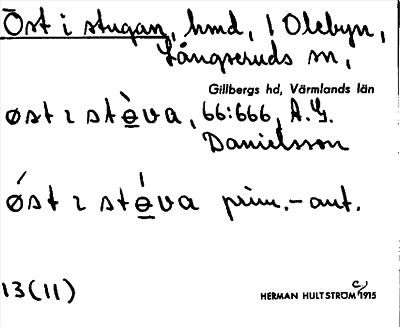 Öst i stugan, hmd, 1 Olebyn,
Långseruds sn,
Gillbergs hd, Värmlands län
øst ɪ stə̀va, 66:666, A.G.
Danielsson
ǿst ɪ stə́va prim.-aut.
13(11)
HERMAN HULTSTRÖM (c) 1915